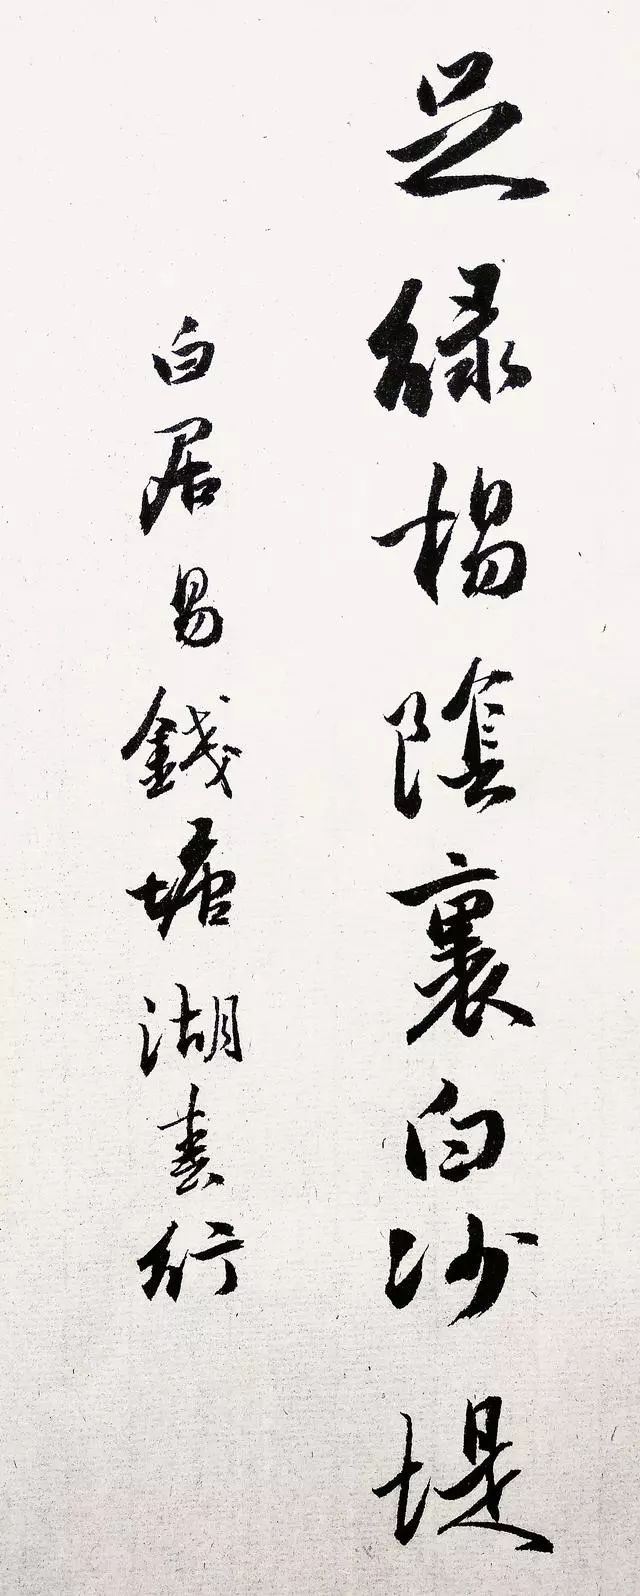 足綠楊陰裏白沙堤
白居易錢塘湖春行